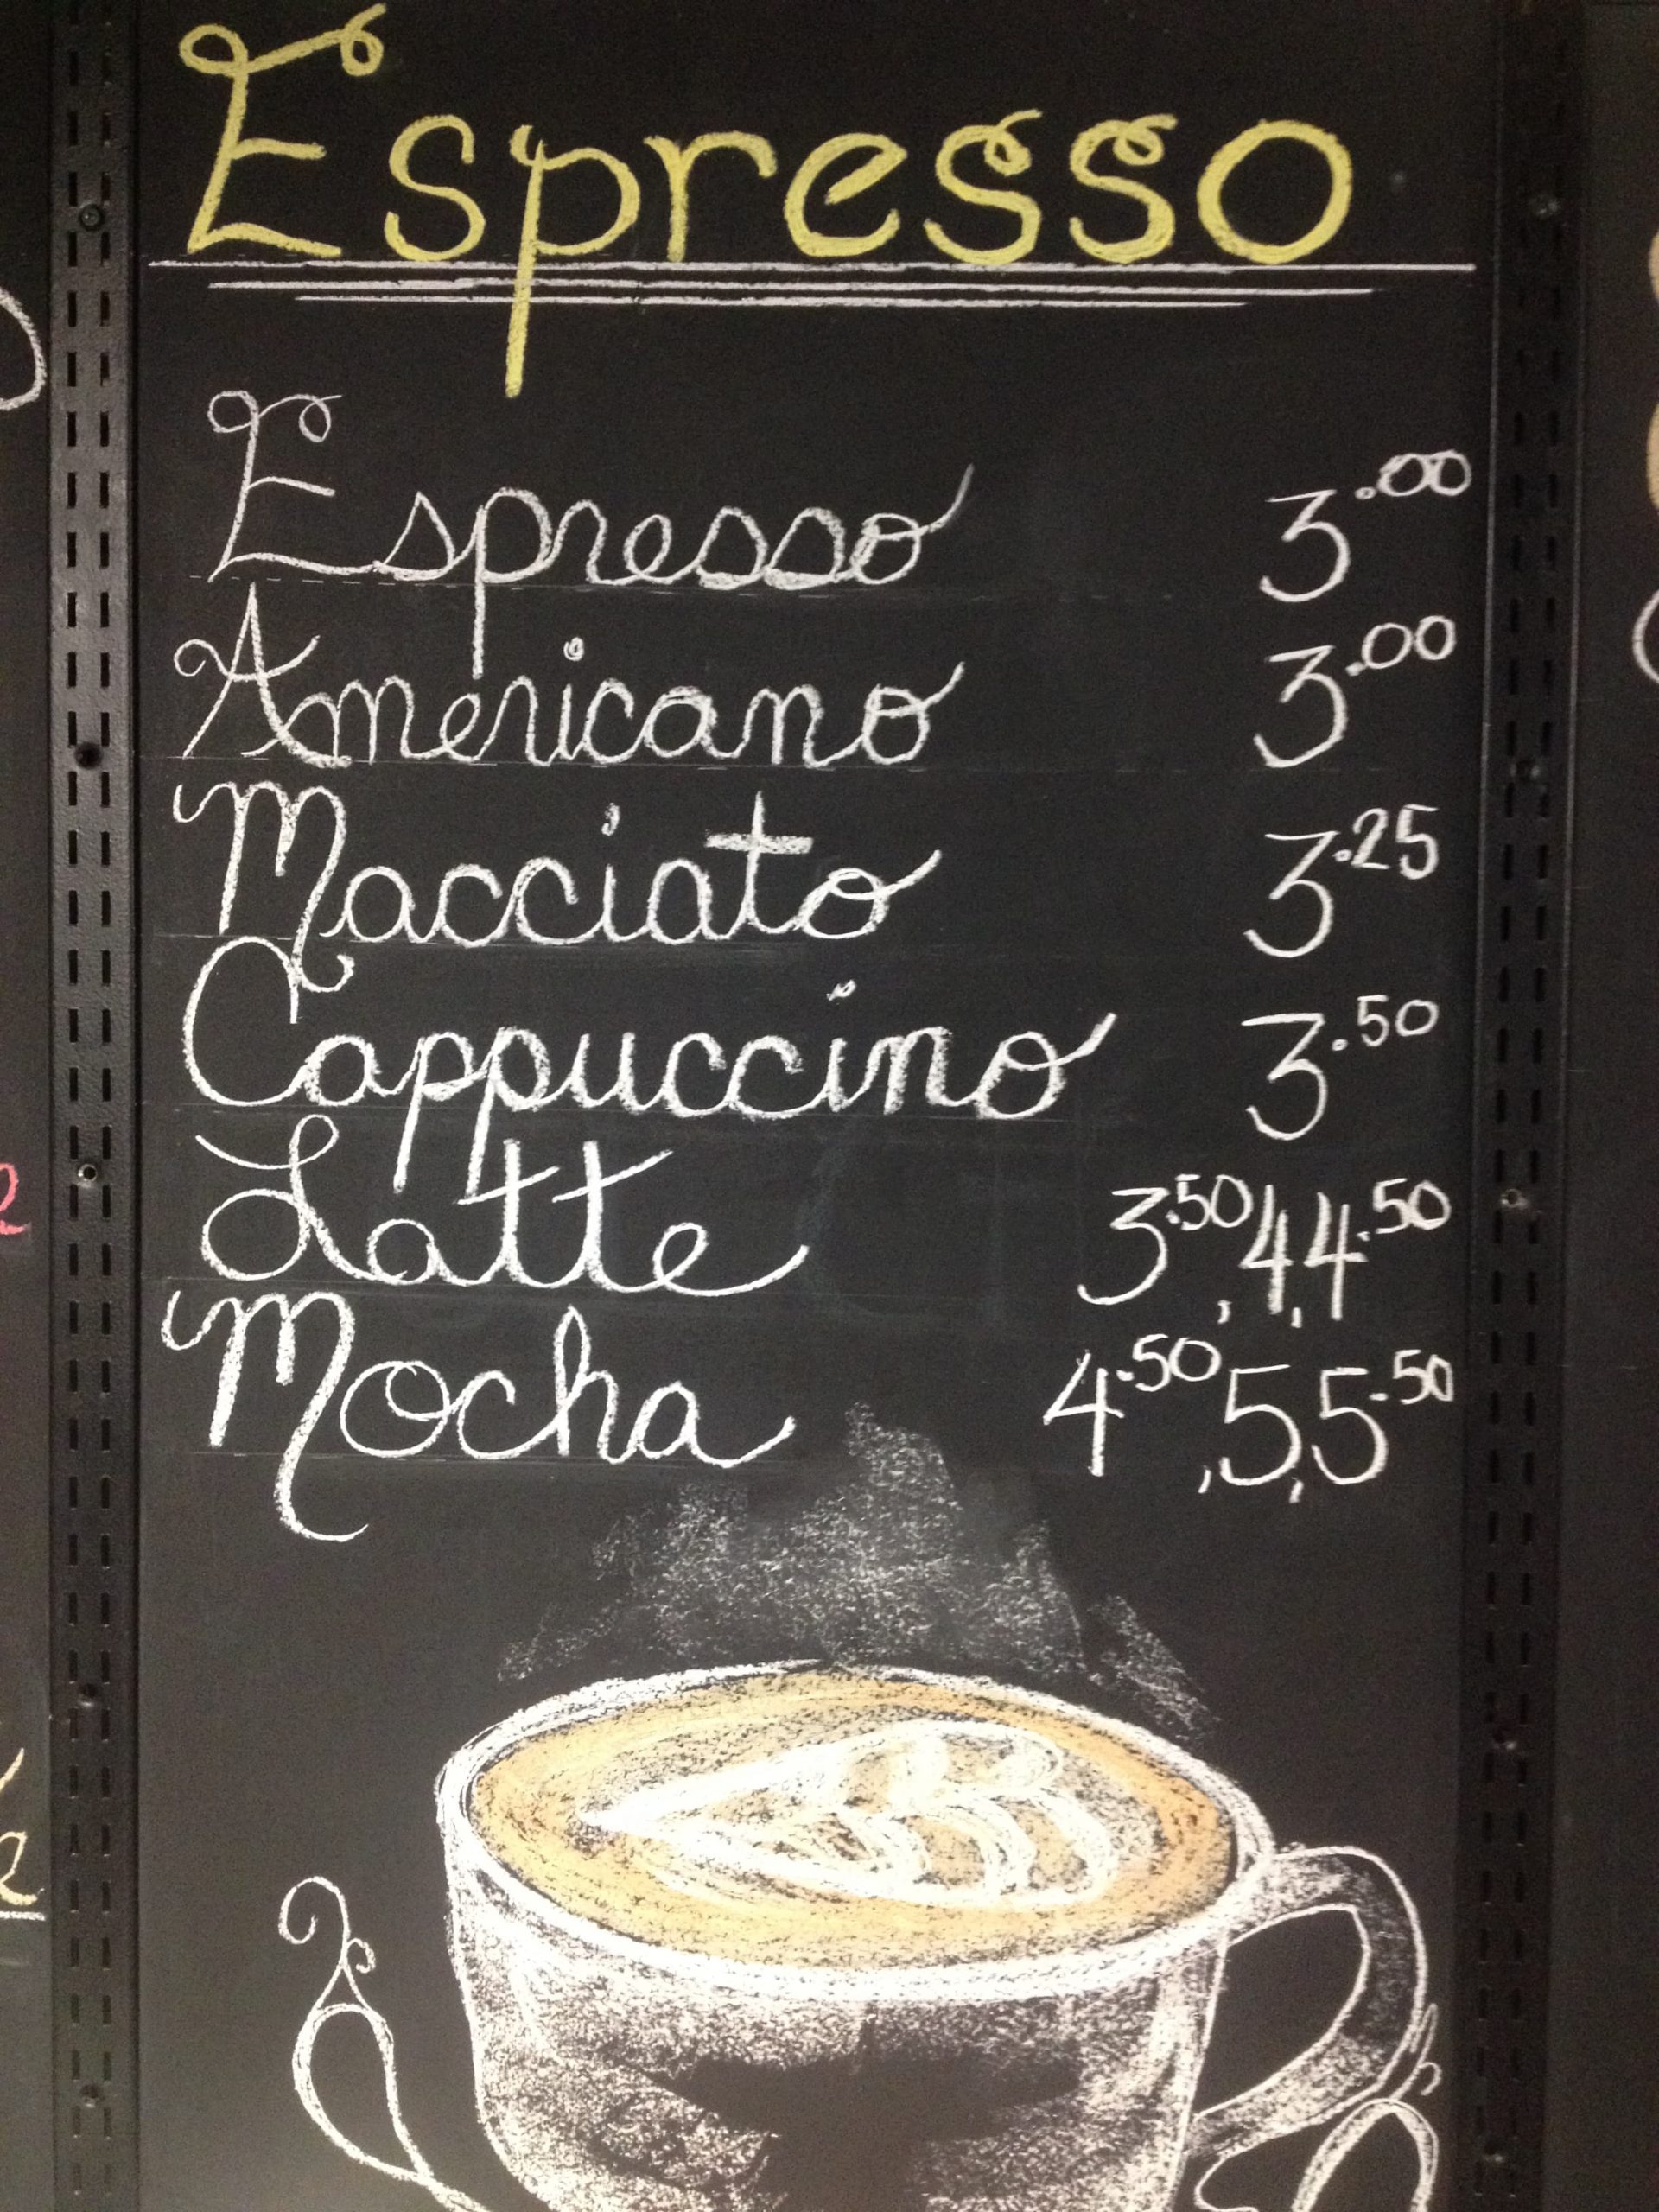 Espresso
Espresso 3.00
Americano 3.00
Macciato 3.25
Cappuccino 3.50
Latte 3.50, 4, 4.50
Mocha 4.50, 5, 5.50